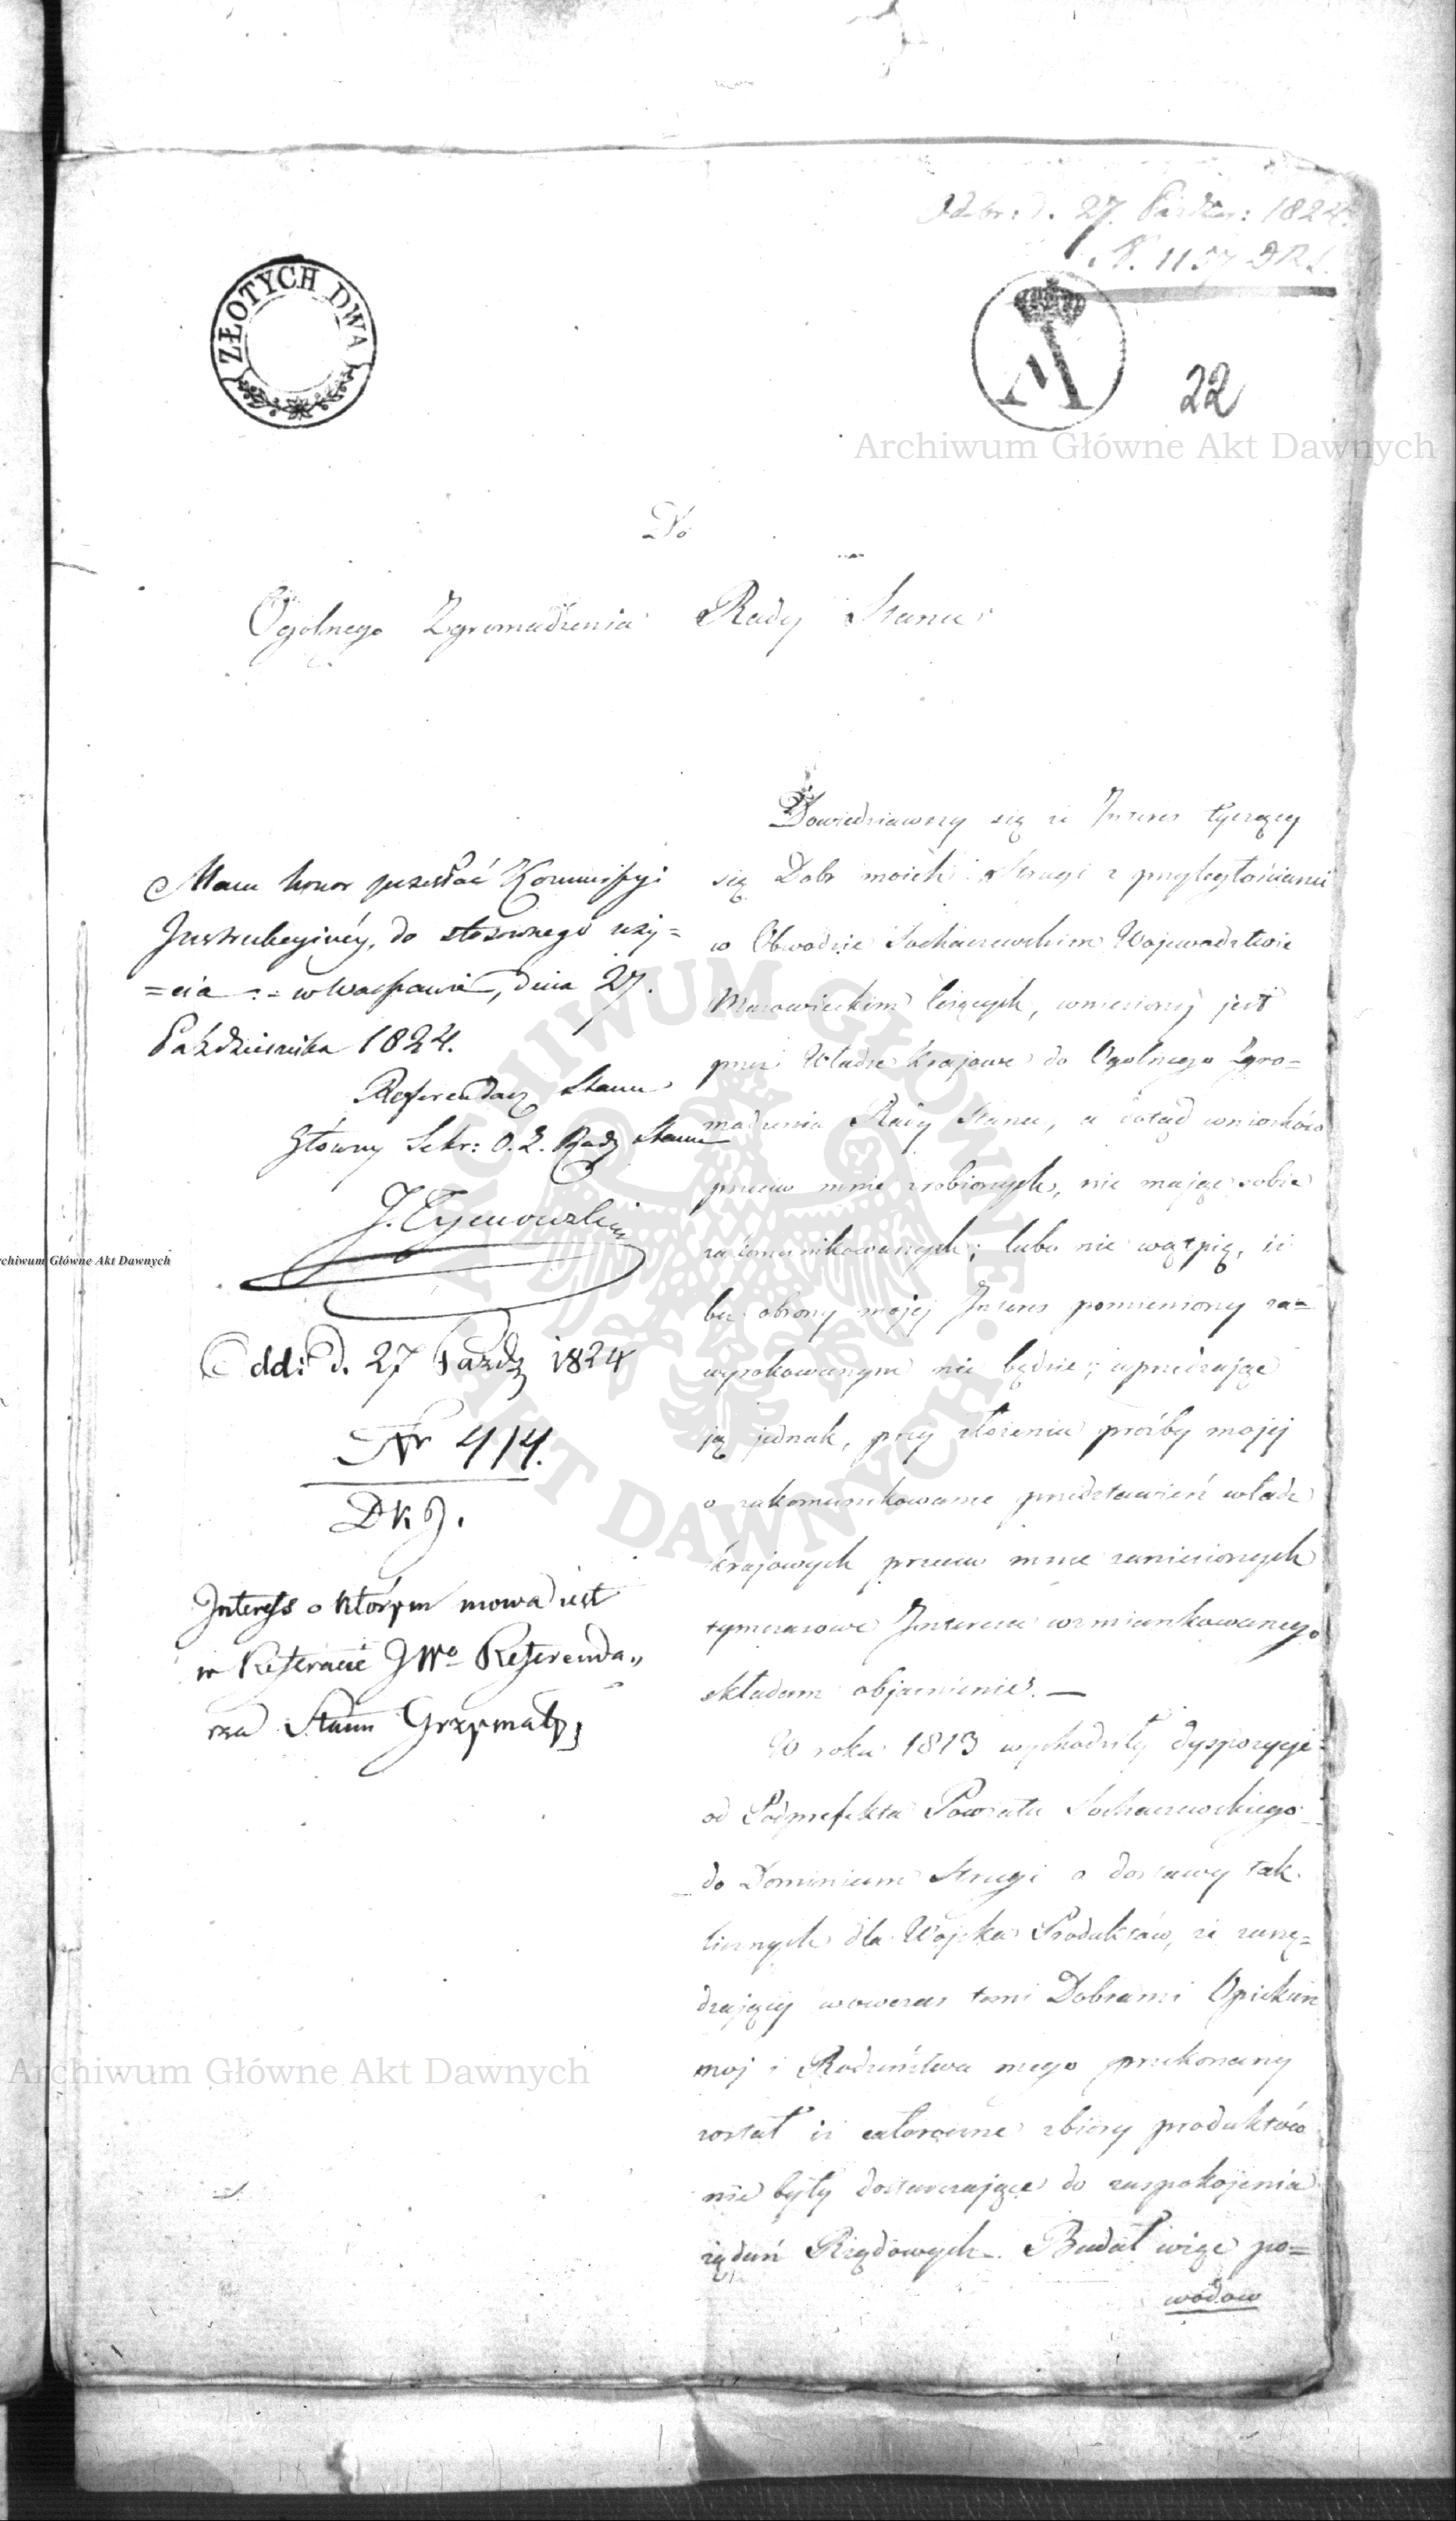 Odebr: d. 27. Paźdzer: 1824.
N. 1157 DRS.
ZŁOTYCH DWA
22
Archiwum Główne Akt Dawnych
Do
Ogolnego Zgromadzenia Rady Stanu
Mam honor przesłać Kommissyi
Instrukcyinéy, do stosownego uży=
=cia -:- w Warszawie, dnia 27.
Października 1824.
Referendarz Stanu
Główny Sekr: O. Z. Rady Stanu
J. Tymowski
Odd: d. 27 Paźdz 1824
Nr 414.
DKJ.
Interess o którym mowa iest
w Referacie JWo Referenda„
rza Stanu Grzymały
Dowiedziawszy się że Interes tyczący
się Dobr moich Strugi z przyległościami
w Obwodzie Sochaczewskim Wojewodztwie
Mazowieckim leżących, wniesiony jest
przez Władze Krajowe do Ogolnego Zgro=
madzenia Rady Stanu, a dotąd wniosków
przeciw mnie zrobionych, nie mając sobie
zakomunikowanych; lubo nie wątpię, iż
bez obrony mojej Interes pomieniony za=
wyrokowanym nie będzie; uprzedzając
ją jednak, przy złożeniu prośby mojej
o zakomunikowanie przedstawień władz
krajowych przeciw mnie zaniesionych
tymczasowe Interesu wzmiankowanego
składam objaśnienie. —
W roku 1813 wychodziły dyspozycje
od Podprefekta Powiatu Sochaczewskiego
do Dominium Strugi o dostawy tak
licznych dla Wojska Produktów, że zarzą=
dzający wowczas temi Dobrami Opiekun
moj i Rodzeństwa mego przekonany
został iż całoroczne zbiory produktów
nie były dostarczające do zaspokojenia
żądań Rządowych. Badał więc po=
wodow
Archiwum Główne Akt Dawnych
chiwum Główne Akt Dawnych
ARCHIWUM GŁÓWNE AKT DAWNYCH